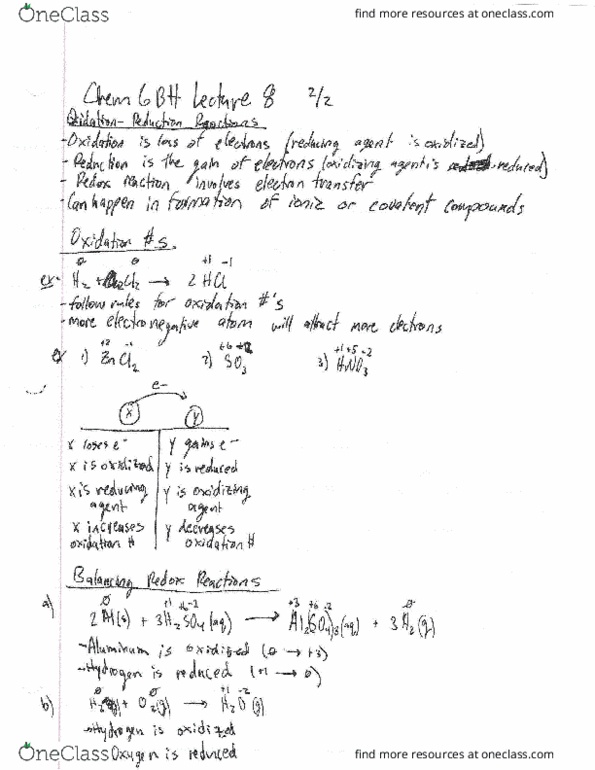 OneClass
find more resources at oneclass.com
Chem 6BH Lecture 8 2/2
Oxidation-Reduction Reactions
-Oxidation is loss of electrons (reducing agent is oxidized)
-Reduction is the gain of electrons (oxidizing agent is reduced)
-Redox reaction involves electron transfer
-Can happen in formation of ionic or covalent compounds
Oxidation #s.
0 0 +1 -1
ex- H2 + Cl2 → 2 HCl
-follow rules for oxidation #'s
-more electronegative atom will attract more electrons
+2 -1 +6 -2 +1 +5 -2
ex 1) ZnCl2 2) SO3 3) HNO3
e-
X Y
X loses e- Y gains e-
X is oxidized Y is reduced
X is reducing agent Y is oxidizing agent
X increases oxidation # Y decreases oxidation #
Balancing Redox Reactions
0 +1 +6 -2 +3 +6 -2 0
a) 2 Al(s) + 3H2SO4(aq) → Al2(SO4)3(aq) + 3H2(g)
-Aluminum is oxidized (0 → +3)
→Hydrogen is reduced (+1 → 0)
0 0 +1 -2
b) H2 + O2(g) → H2O(g)
→Hydrogen is oxidized
Oxygen is reduced
OneClass
find more resources at oneclass.com